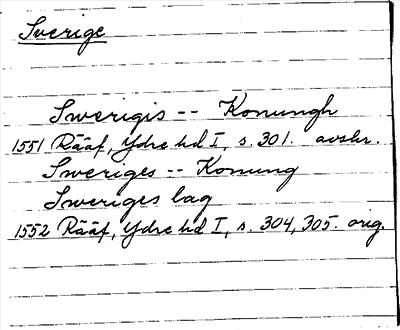 Sverige
Swerigis -- Konungh
1551 Rääf, Ydre hd I, s. 301. avskr.
Sweriges -- Konung
Sweriges lag
1552 Rääf, Ydre hd I, s. 304, 305. orig.